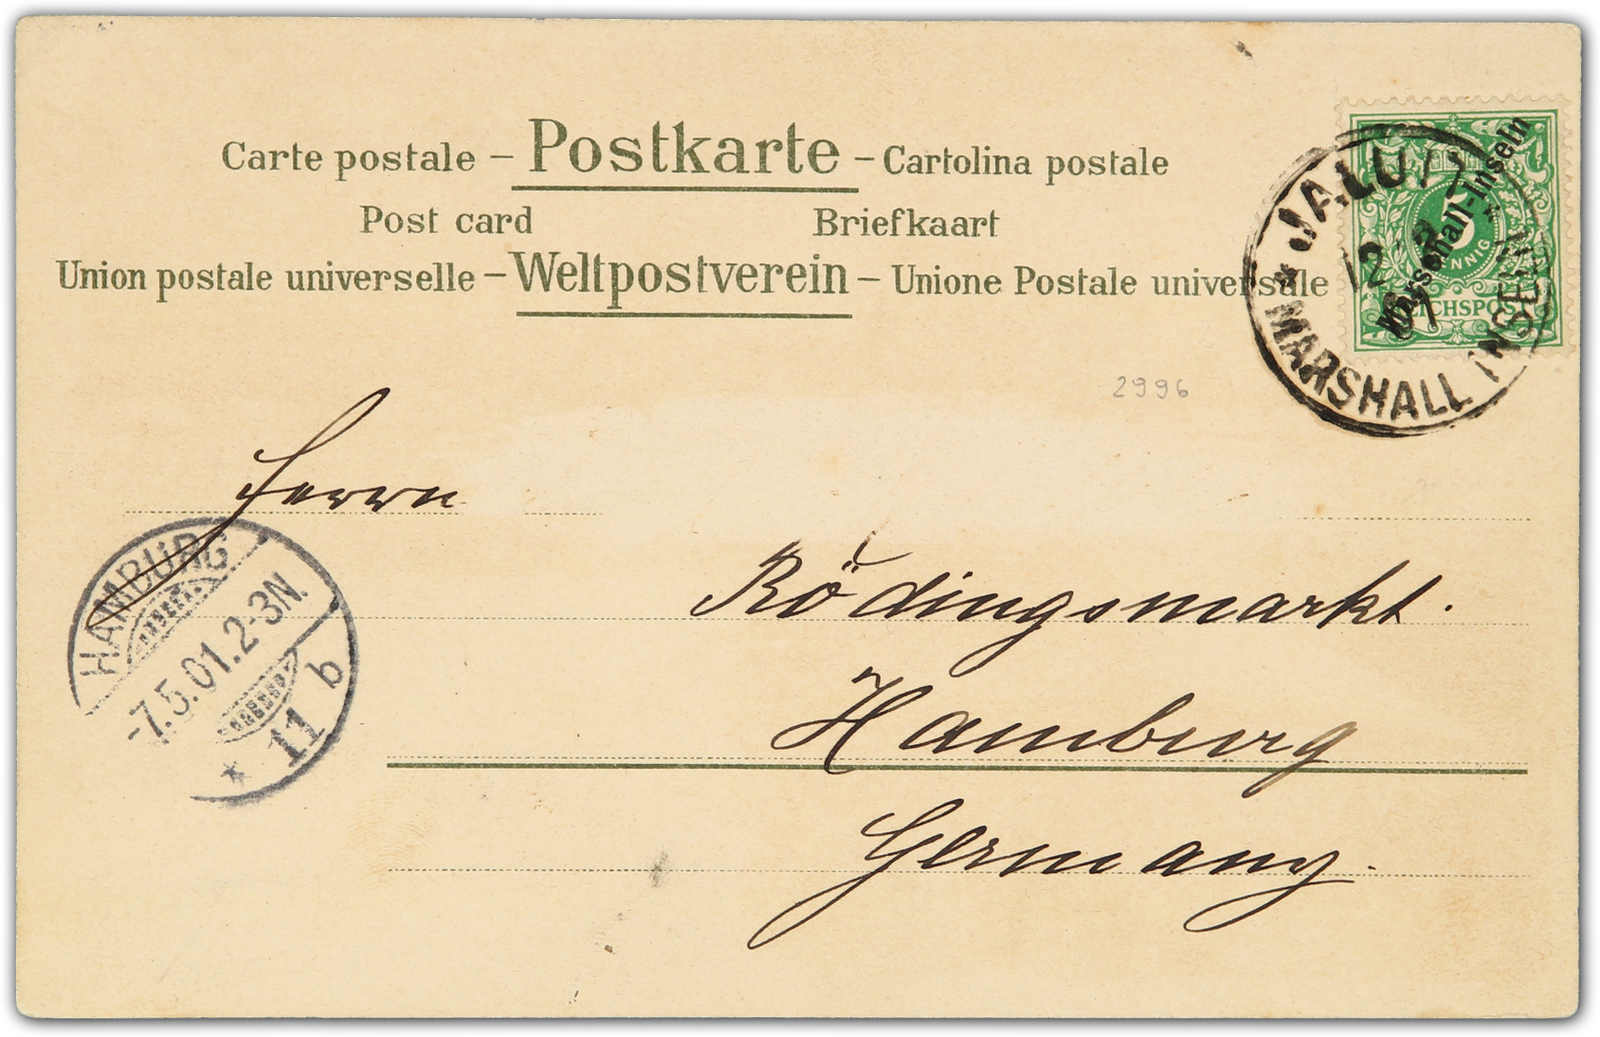 Carte postale – Postkarte – Cartolina postale
Post card Briefkaart
Union postale universelle – Weltpostverein – Unione Postale universale
Marschall-Inseln
5
PFENNIG
REICHSPOST
JALUIT
12
MARSHALL INSELN
2996
Herrn
HAMBURG
-7.5.01.2-3N.
* 11 b
Rödingsmarkt.
Hamburg
Germany.